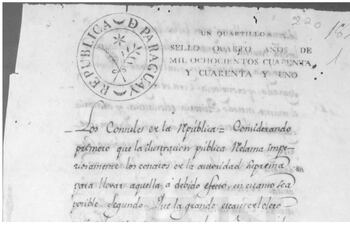 REPUBLICA D PARAGUAY
UN QUARTILLO
SELLO QUARTO AÑOS DE
MIL OCHOCIENTOS CUARENTA
Y CUARENTA Y UNO
220
1
Los Consules de la Republica = Considerando
primero que la ilustracion publica reclama impe-
riosamente los conatos de la autoridad suprema
para llevar aquella á debido efecto, en cuanto sea
posible. Segundo. Que la grande escasez de clero